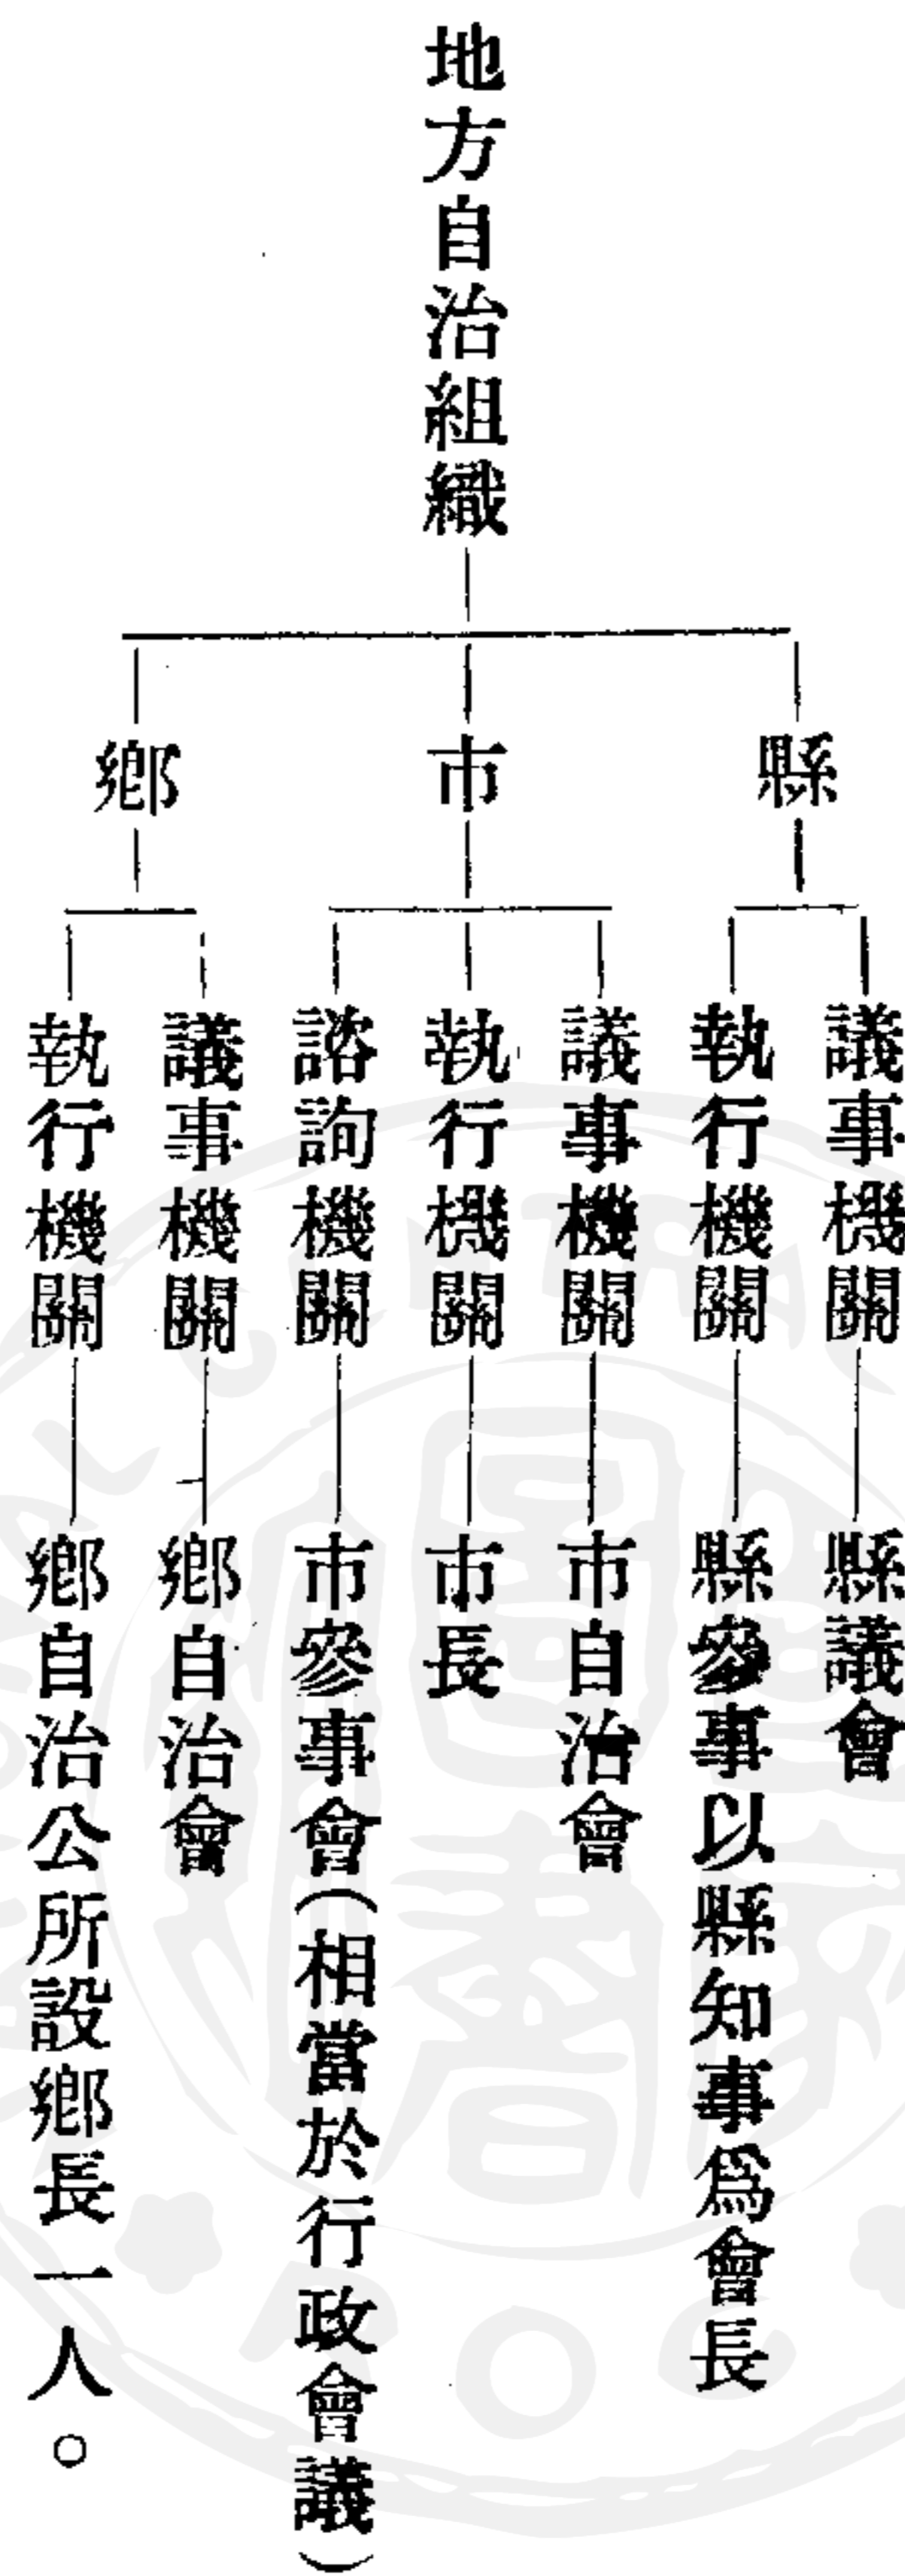 地方自治組織
縣
議事機關
縣議會
執行機關
縣參事以縣知事爲會長
市
議事機關
市自治會
執行機關
市長
諮詢機關
市參事會(相當於行政會議)
鄉
議事機關
鄉自治會
執行機關
鄉自治公所設鄉長一人。